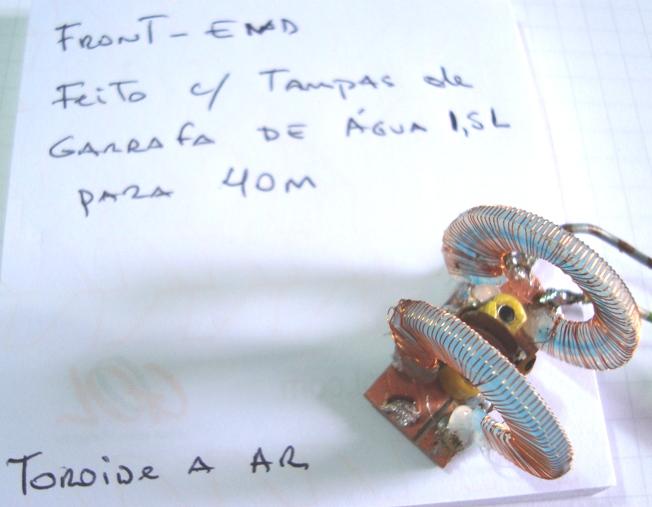 FRONT-END
FEITO c/ TAMPAS de
GARRAFA DE ÁGUA 1,5L
PARA 40M
TOROIDE A AR